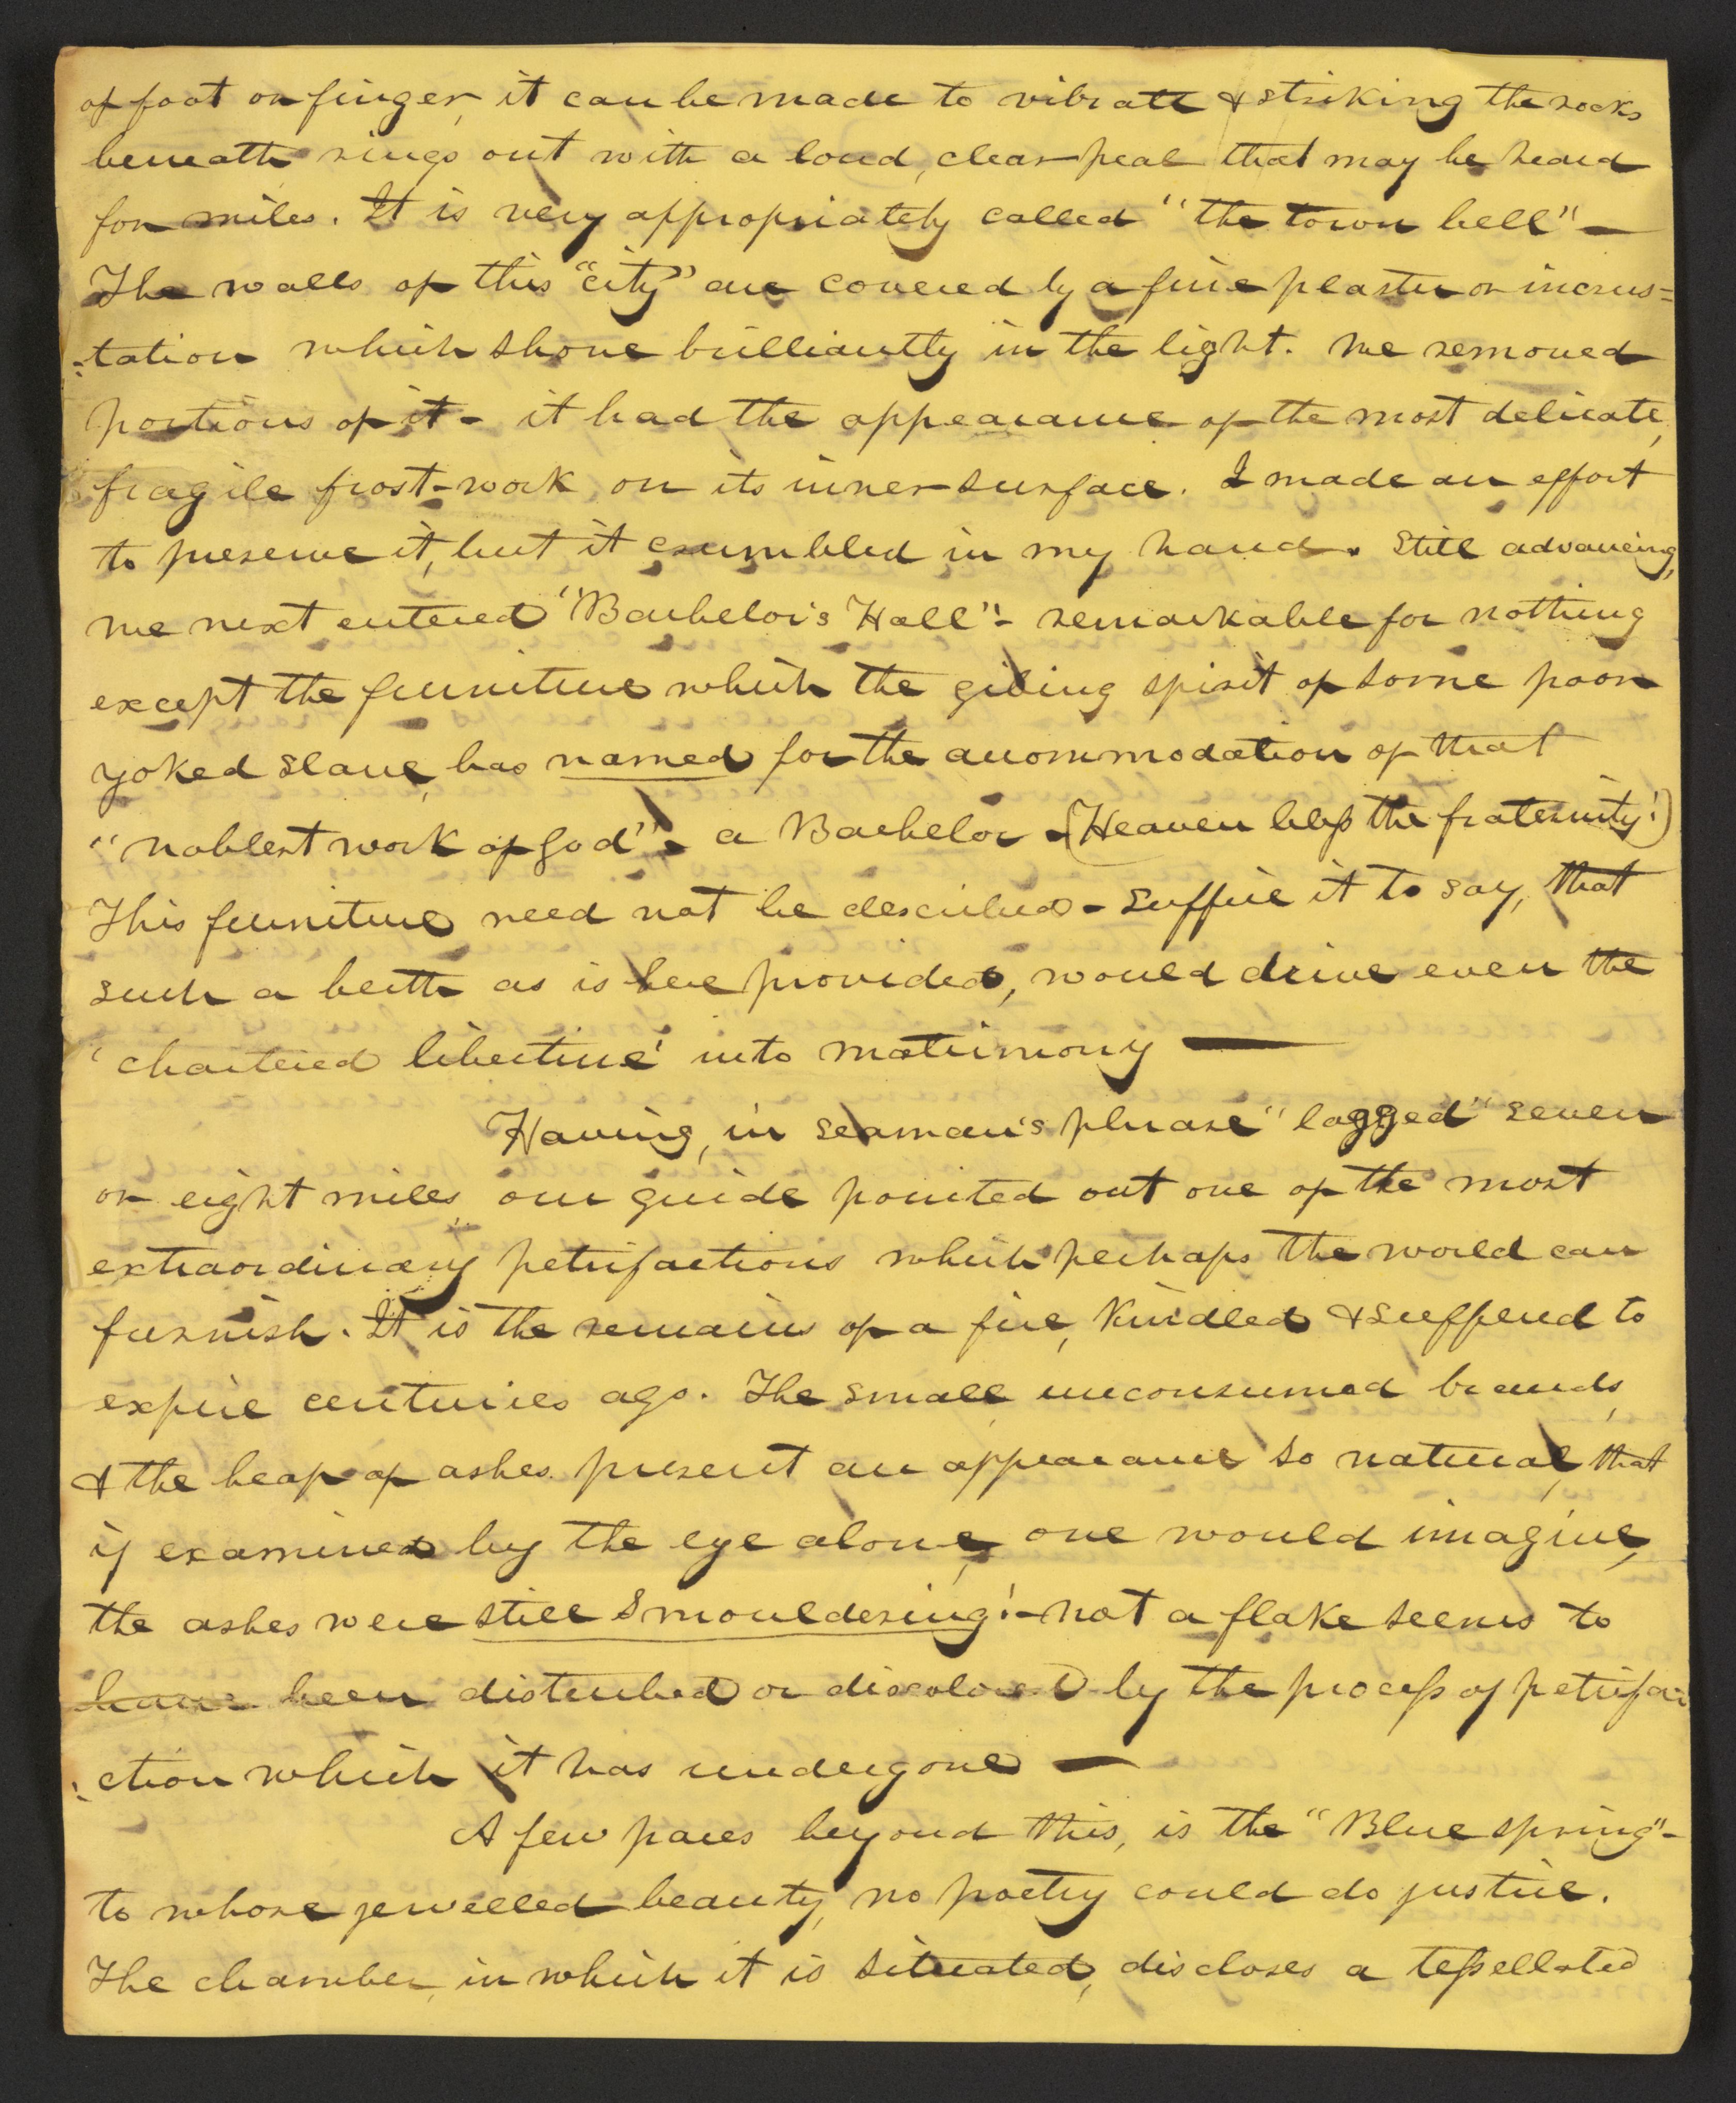 of foot or finger, it can be made to vibrate & striking the rocks
beneath rings out with a loud, clear peal that may be heard
for miles. It is very appropriately called "the town bell" —
The walls of this "city" are covered by a fine plaster or incrus=
=tation which shone brilliantly in the light. We removed
portions of it - it had the appearance of the most delicate,
fragile frost-work on its inner surface. I made an effort
to preserve it, but it crumbled in my hand. Still advancing,
we next entered "Bachelor's Hall" - remarkable for nothing
except the furniture which the gibing spirit of some poor
yoked slave, has named for the accommodation of that
"noblest work of God" - a Bachelor - (Heaven bless the fraternity!)
This furniture need not be described - suffice it to say, that
such a berth as is here provided, would drive even the
'chartered libertine' into matrimony —
Having, in seaman's phrase "logged" seven
or eight miles, our guide pointed out one of the most
extraordinary petrifactions which perhaps the world can
furnish. It is the remains of a fire, kindled & suffered to
expire centuries ago. The small unconsumed brands,
& the heap of ashes present an appearance so natural, that
if examined by the eye alone, one would imagine,
the ashes were still smouldering! - not a flake seems to
have been disturbed or discolored by the process of petrifa=
=ction which it has undergone —
A few paces beyond this, is the "Blue spring" -
to whose jewelled beauty, no poetry could do justice.
The chamber, in which it is situated, discloses a tessellated